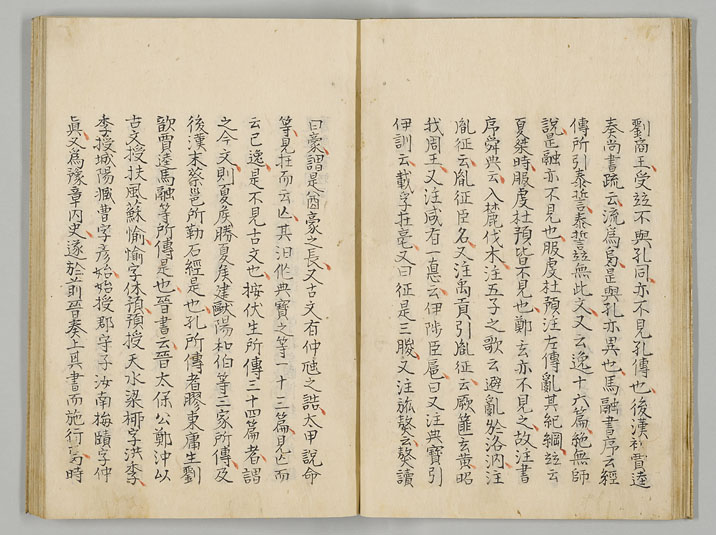 劉商王受並不與孔同亦不見孔傳也後漢初賈逵
奏尚書疏云流為烏是與孔亦異也馬融書序云經
傳所引泰誓泰誓並無此文又云逸十六篇絶無師
說是融亦不見也服虔杜預注左傳亂其紀綱並云
夏桀時服虔杜預皆不見也鄭玄亦不見之故注書
序舜典云入麓伐木注五子之歌云避亂於洛汭注
胤征云胤征臣名又注禹貢引胤征云厥篚玄黄昭
我周王又注咸有一悳云伊陟臣扈曰又注典寶引
伊訓云載孚在亳又曰征是三朡又注旅獒云獒讀
曰豪謂是酋豪之長又古文有仲虺之誥太甲說命
等見在而云亡其汨作典寶之等一十三篇見亡而
云已逸是不見古文也按伏生所傳三十四篇者謂
之今文則夏侯勝夏侯建歐陽和伯等三家所傳及
後漢末蔡邕所勒石經是也孔所傳者膠東庸生劉
歆賈逵馬融等所傳是也晉書云晉太保公鄭沖以
古文授扶風蘇愉愉字休預預授天水梁柳字洪季
季授城陽臧曹字彦始始授郡守子汝南梅賾字仲
真又為豫章内史遂於前晉奏上其書而施行焉時